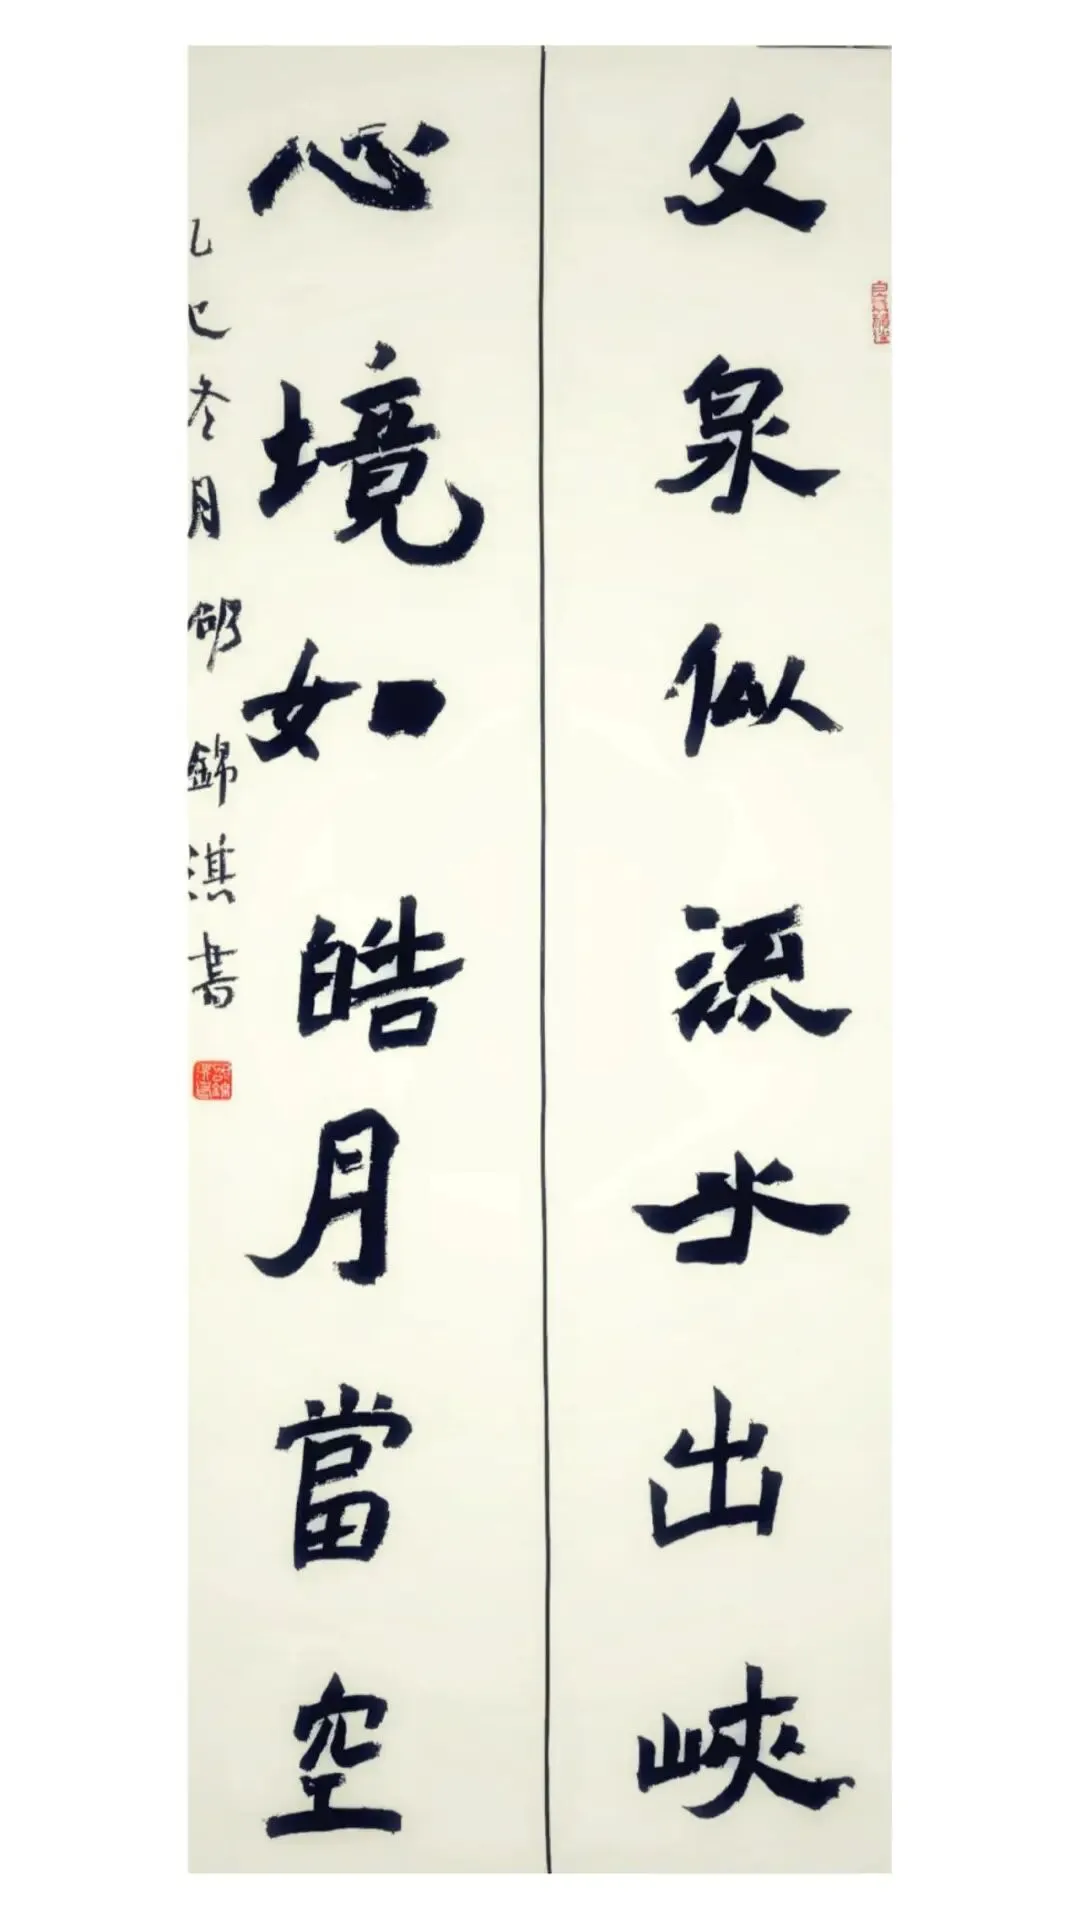 文泉似流水出峽
心境如皓月當空
乙巳冬月 錦淇書